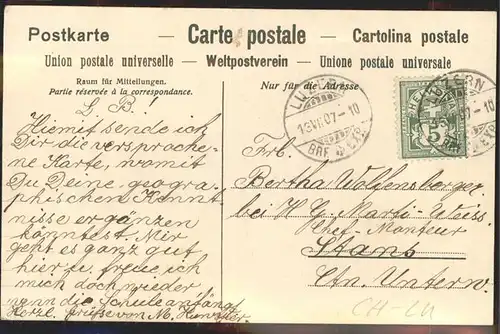 Postkarte — Carte postale — Cartolina postale
Union postale universelle — Weltpostverein — Unione postale universale
Raum für Mitteilungen.
Partie réservée à la correspondance.
Nur für die Adresse
L. B!
Hiemit sende ich
Dir die versproche-
ne Karte, womit
Du Deine geogra-
phischen Kennt-
nisse ergänzen
könntest. Mir
geht es ganz gut
hier u. freue ich
mich doch wieder
wenn die Schule anfängt
Herzl. Grüsse von M. Hunziker
LUZERN
13 VII 07-10
BRF
HELVETIA
5
LUZERN
07-10
BRF
Frl.
Bertha Wolfensberger
bei H. G. Marti-Weiss
Chef-Monteur
Stans
Ctn. Unterw.
CH-LU